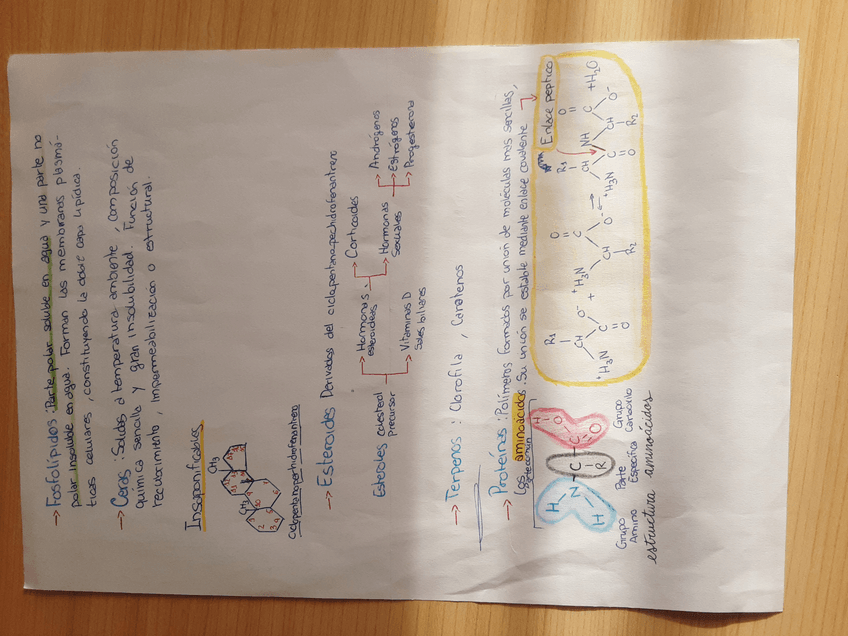 → Fosfolípidos: Parte polar soluble en agua y una parte no
polar insoluble en agua. Forman las membranas plasmá-
ticas celulares, constituyendo la doble capa lipídica.
→ Ceras: Sólidas a temperatura ambiente, composición
química sencilla y gran insolubilidad. Función de
recubrimiento, impermeabilización o estructural.
Insaponificables
CH3
CH3
Ciclopentanoperhidrofenantreno
→ Esteroides Derivados del ciclopentanoperhidrofenantreno
Esteroles
Colesterol
Precursor
Hormonas
esteroideas
Corticoides
Hormonas
sexuales
Andrógenos
Estrógenos
Progesterona
Vitaminas D
Sales biliares
→ Terpenos: Clorofila, Carotenos
→ Proteínas: Polímeros formados por unión de moléculas más sencillas,
los aminoácidos. Su unión se estable mediante enlace covalente →
Enlace peptico
Parte común
H
H N C C O
O H
R
Grupo
Amino
Parte
Específica
Grupo
Carboxilo
estructura aminoácidos
R1 O R1 O
CH O⁻ + ⁺H3N C CH NH C + H2O
⁺H3N C CH O⁻ ⇄ ⁺H3N C CH O⁻
O R2 O R2